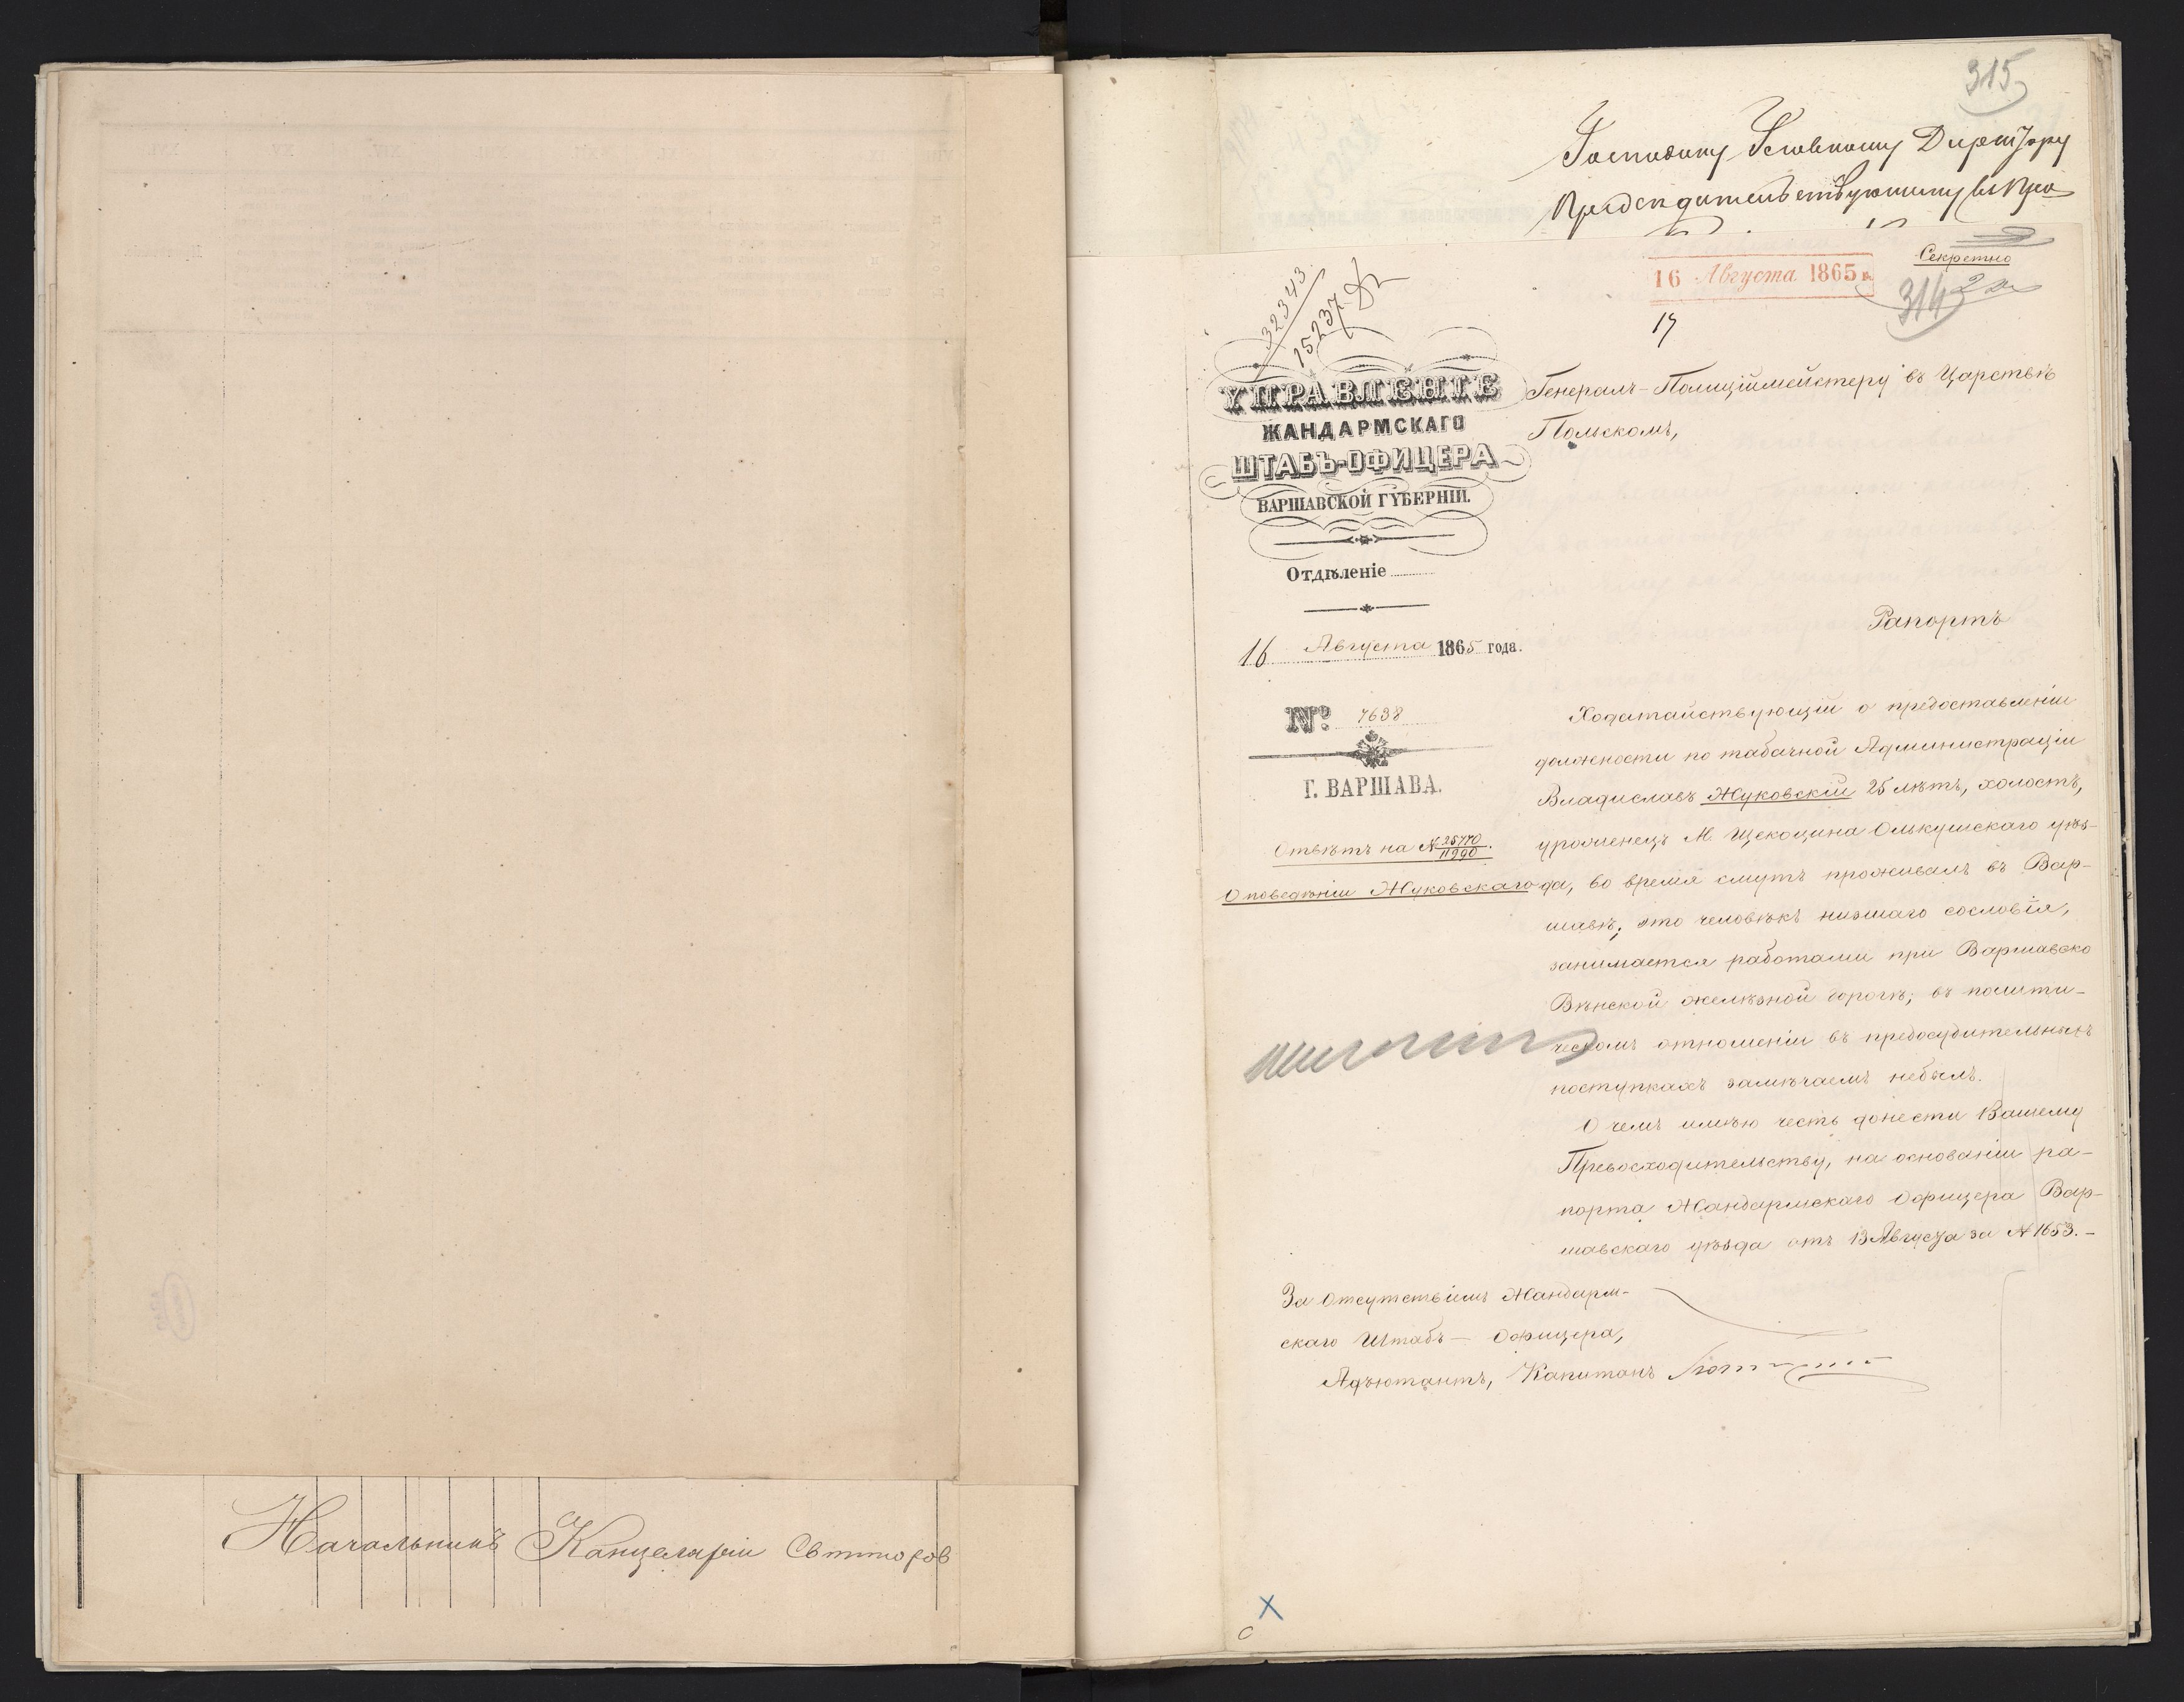 Начальникъ Канцеляріи
315
Господину Главному Директору
Предсѣдательствующему въ Пра
Секретно
16 Августа 1865 г.
314
17
32343
15237
УПРАВЛЕНІЕ
ЖАНДАРМСКАГО
ШТАБЪ-ОФИЦЕРА
ВАРШАВСКОЙ ГУБЕРНІИ.
Отдѣленіе
16 Августа 1865 года.
№ 7638
Г. ВАРШАВА.
Отвѣтъ на № 25770/11990.
О поведеніи Жуковскаго
Генералъ-Полиціймейстеру въ Царствѣ
Польскомъ,
Рапортъ
Ходатайствующій о предоставленіи
должности по табачной Администраціи
Владиславъ Жуковскій 25 лѣтъ, холостъ,
уроженецъ М. Щекоцина Олькушскаго уѣз-
да, во время смутъ проживалъ въ Вар-
шавѣ; это человѣкъ низшаго сословія,
занимается работами при Варшавско
Вѣнской желѣзной дорогѣ; въ полити-
ческомъ отношеніи въ предосудительныхъ
поступкахъ замѣчаемъ небылъ.
О чемъ имѣю честь донести Вашему
Превосходительству, на основаніи ра-
порта Жандармскаго Офицера Вар-
шавскаго уѣзда отъ 13 Августа за № 1653.-
За отсутствіемъ Жандарм-
скаго Штабъ-Офицера,
Адъютантъ, Капитанъ